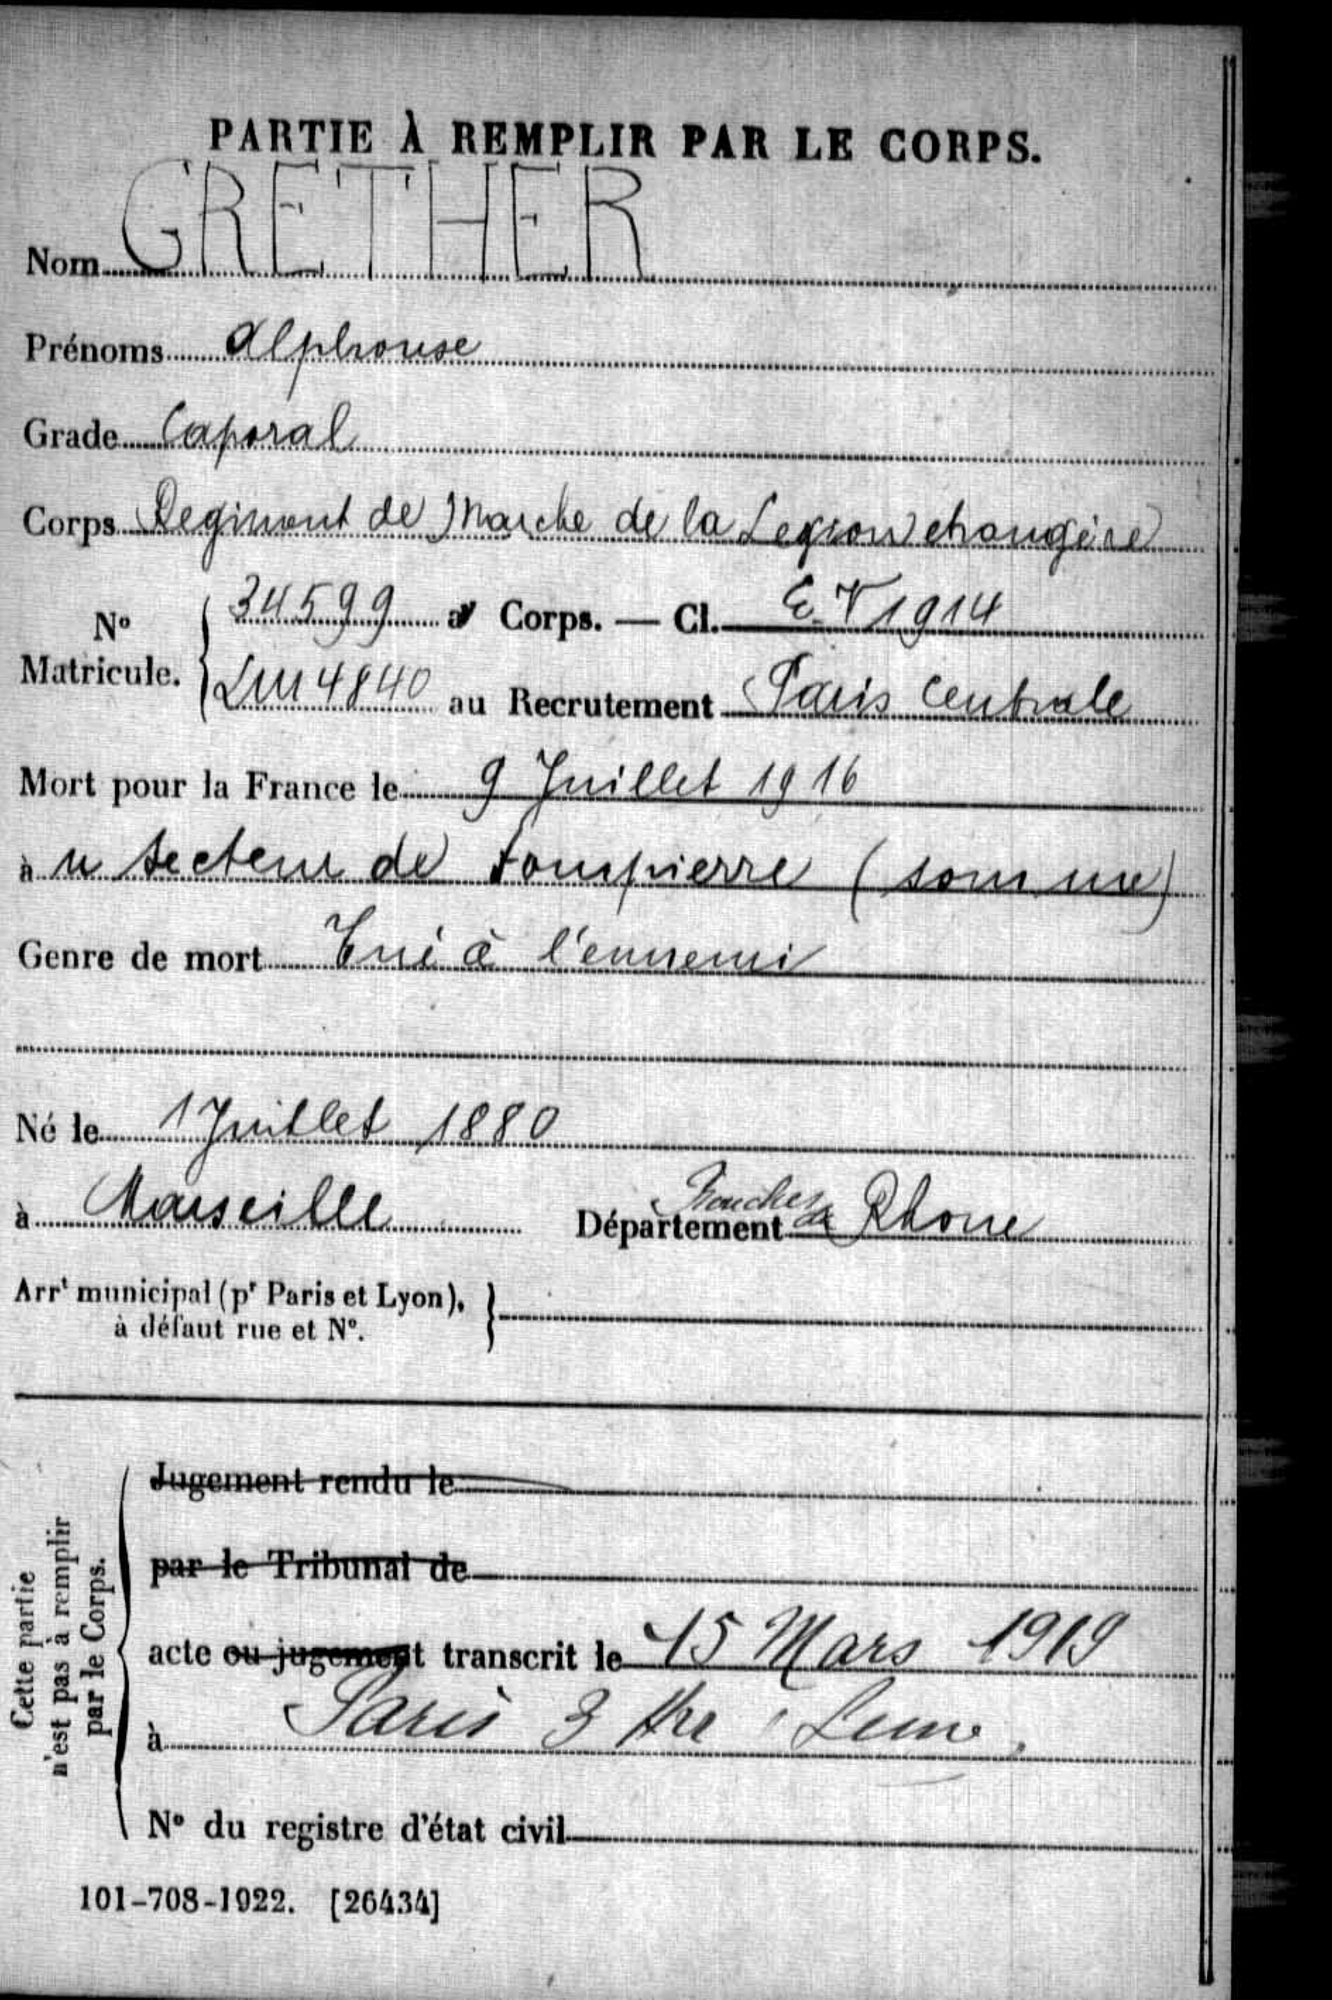 PARTIE À REMPLIR PAR LE CORPS.
Nom GRETHER
Prénoms Alphonse
Grade Caporal
Corps Regiment de Marche de la Legion etrangère
N° Matricule. { 34599 au Corps. — Cl. E.V 1914
LM 4840 au Recrutement Paris Centrale
Mort pour la France le 9 Juillet 1916
à u secteur de Fompierre (Somme)
Genre de mort Tué à l'ennemi
Né le 1 Juillet 1880
à Marseille Département Bouches de Rhone
Arrt municipal (pr Paris et Lyon),
à défaut rue et N°.
Cette partie
n'est pas à remplir
par le Corps.
Jugement rendu le
par le Tribunal de
acte ou jugement transcrit le 15 Mars 1919
à Paris 3 Seine.
N° du registre d'état civil
101-708-1922. [26434]